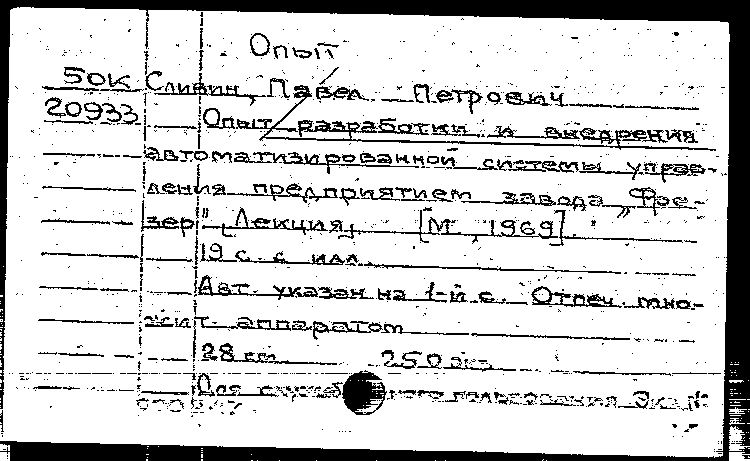 Опыт
50К Сливин, Павел Петрович
20933 Опыт разработки и внедрения
автоматизированной системы управ-
ления предприятием завода „Фре-
зер" [Лекция] [М., 1969].
19 с. с илл.
Авт. указан на 1-й с. Отпеч. мно-
жит. аппаратом
28 см. 250 экз.
Для служебного пользования Экз. №